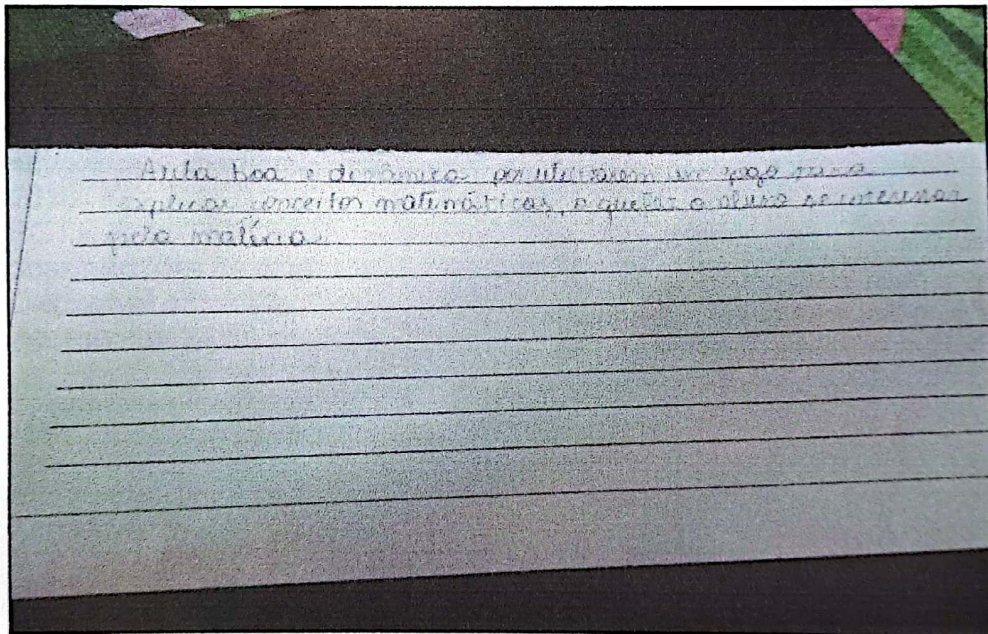 Aula boa e dinâmica por utilizarem um jogo para
explicar conceitos matemáticos, o aluno se
pela matéria